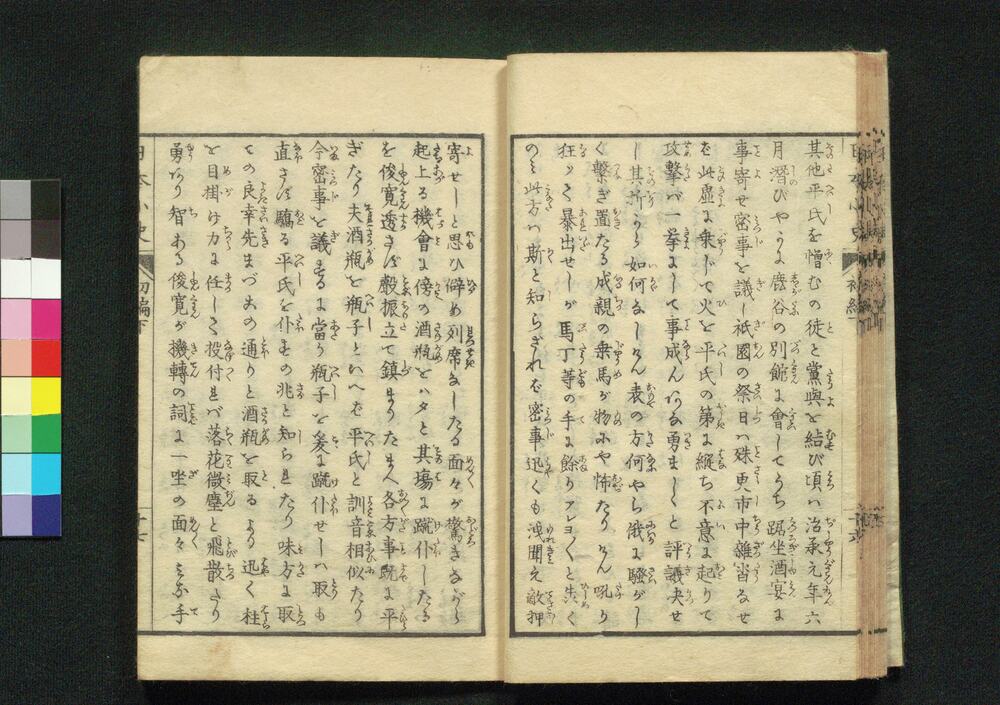 其他平氏を憎むの徒と黨與を結び頃ハ治承元年六
月潛びやうに鹿谷の別館に會してうち踞坐酒宴に
事寄せ密事を議し祇國の祭日ハ殊更市中雜沓なせ
を此虚に乗じて火を平氏の第に縦ち不意に起りて
攻撃バ一挙にして事成ん
勇ましくと評議决せ
し其折から如何なしけん表の方何やら俄に騒がし
く繋ぎ置たる成親の乗馬が物にや怖たりけん吼り
狂ッて暴出せしが馬丁等の手に餘りアレヨくと
のミ此方ハ斯と知らざれバ密事迅くも洩聞え敵押
寄せしと思ひ僻め列席なしたる面々が驚きながら
起上る機會に傍の酒瓶をハタと其塲に蹴仆したる
を俊寛透さず聲振立て鎮まりたまへ各方事既に平
ぎたり夫酒瓶を瓶子といへバ平氏と訓音相似たり
今密事を議するに當り瓶子を爰に蹴仆せしハ取も
直さず驕る平氏を仆すの兆と知られたり味方に取
ての良幸先まづ
の通りと酒瓶を取るより迅く柱
を目掛け力に任して投付れバ落花微塵と飛散たり
勇あり智ある俊寛が機轉の詞に一坐の面々
手
日本小史
初編下